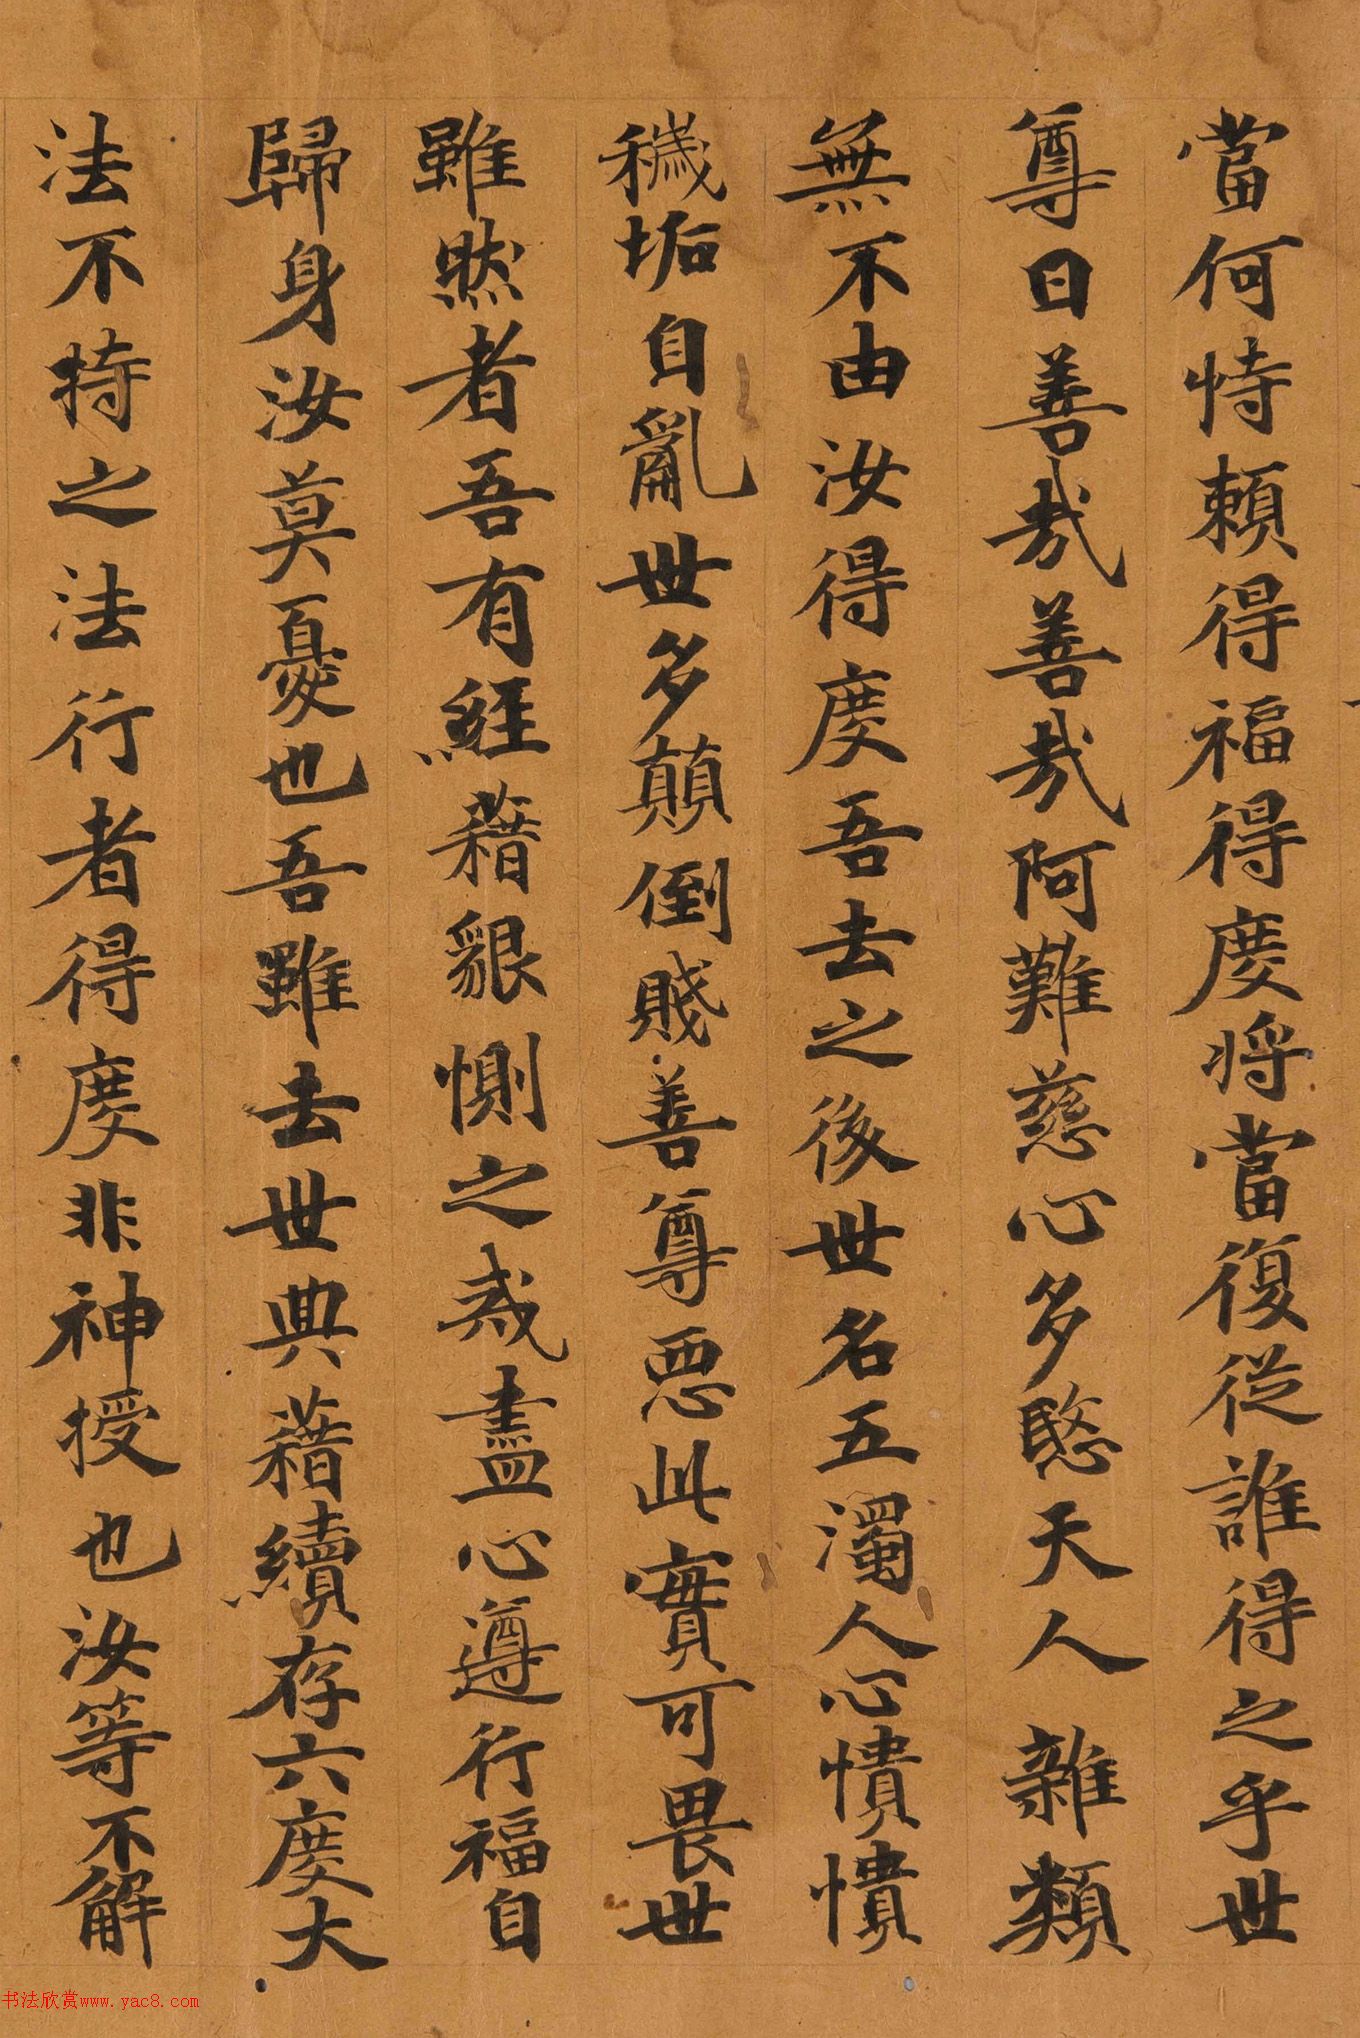 當何恃頼得福得度将當復從誰得之乎世
尊曰善哉善哉阿難慈心多愍天人雜類
無不由汝得度吾去之後世名五濁人心憒憒
穢垢自亂世多顛倒賤善尊惡此實可畏世
雖然者吾有經藉懇惻之戒盡心遵行福自
歸身汝莫憂也吾雖去世典藉續存六度大
法不持之法行者得度非神授也汝等不解
书法欣赏www.yac8.com